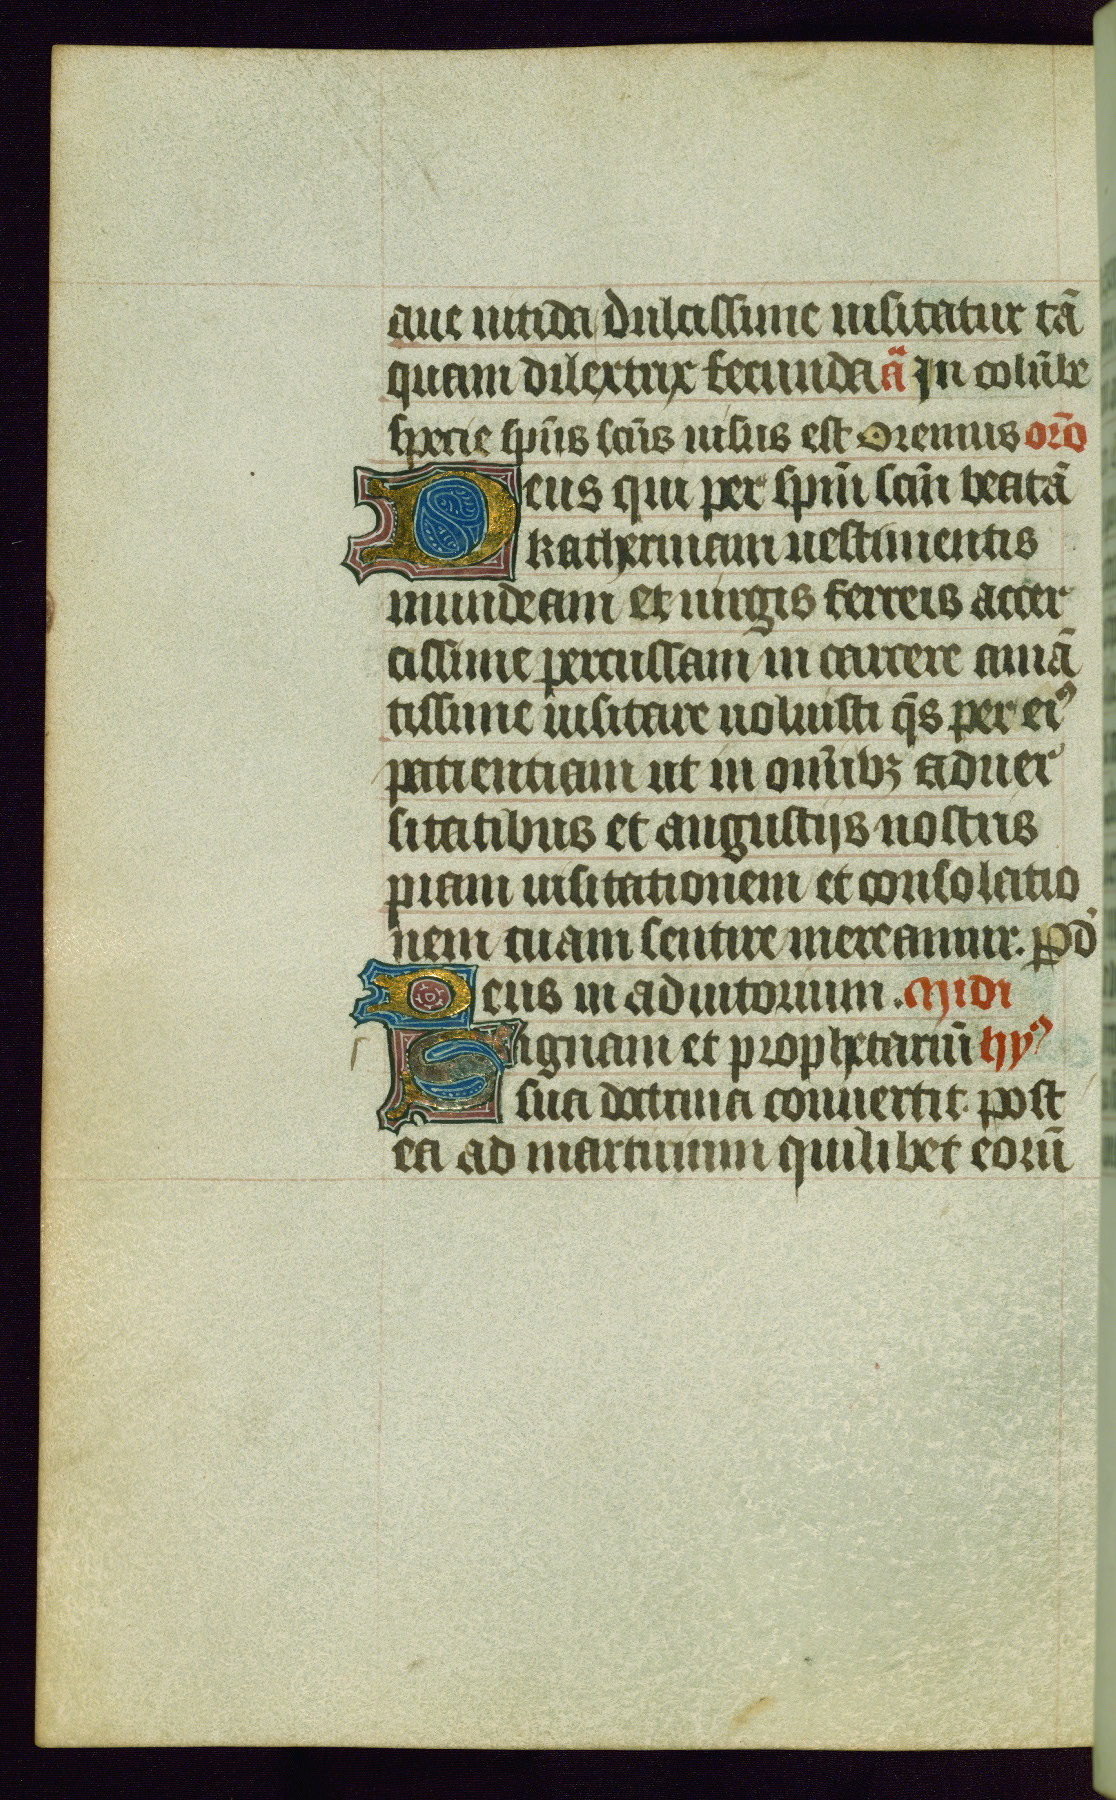 aue nitida dulcissime uisitatur tā
quam dilextrix fecunda ā In colūbe
specie spūs scūs uisus est Oremus orō
Deus qui per spm̄ scm̄ beatā
katherinam uestimentis
mundeam et uirgis ferreis acer
cissime percussam in carcere amā
tissime uisitare uoluisti q̄s per eiꝰ
patientiam ut in om̄ibꝫ aduer
sitatibus et angustijs nostris
piam uisitationem et consolatio
nem tuam sentire mereamur. ꝑ d
Deus in adiutorium. Midi
Sagnam et prophetariū hyꝰ
sua doctrina conuertit post
ea ad martirium quilibet eorū